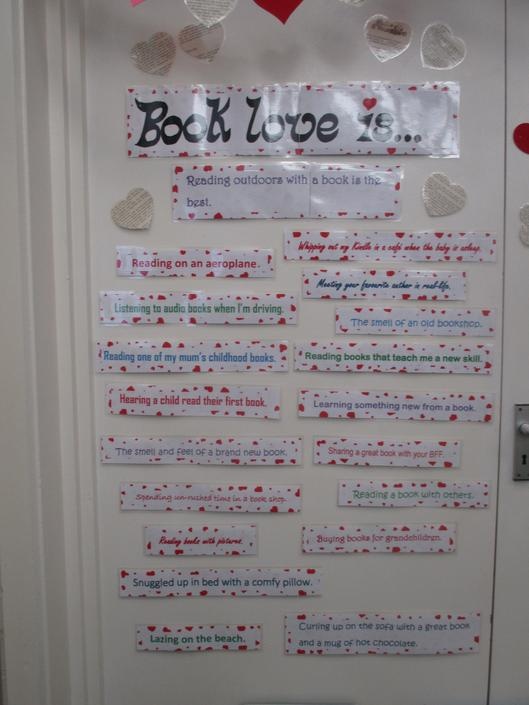 Book love is...
Reading outdoors with a book is the
best.
Whipping out my Kindle in a café when the baby is asleep.
Reading on an aeroplane.
Meeting your favourite author in real-life.
Listening to audio books when I'm driving.
The smell of an old bookshop.
Reading one of my mum's childhood books.
Reading books that teach me a new skill.
Hearing a child read their first book.
Learning something new from a book.
The smell and feel of a brand new book.
Sharing a great book with your BFF.
Spending un-rushed time in a book shop.
Reading a book with others.
Reading books with pictures.
Buying books for grandchildren.
Snuggled up in bed with a comfy pillow.
Lazing on the beach.
Curling up on the sofa with a great book
and a mug of hot chocolate.